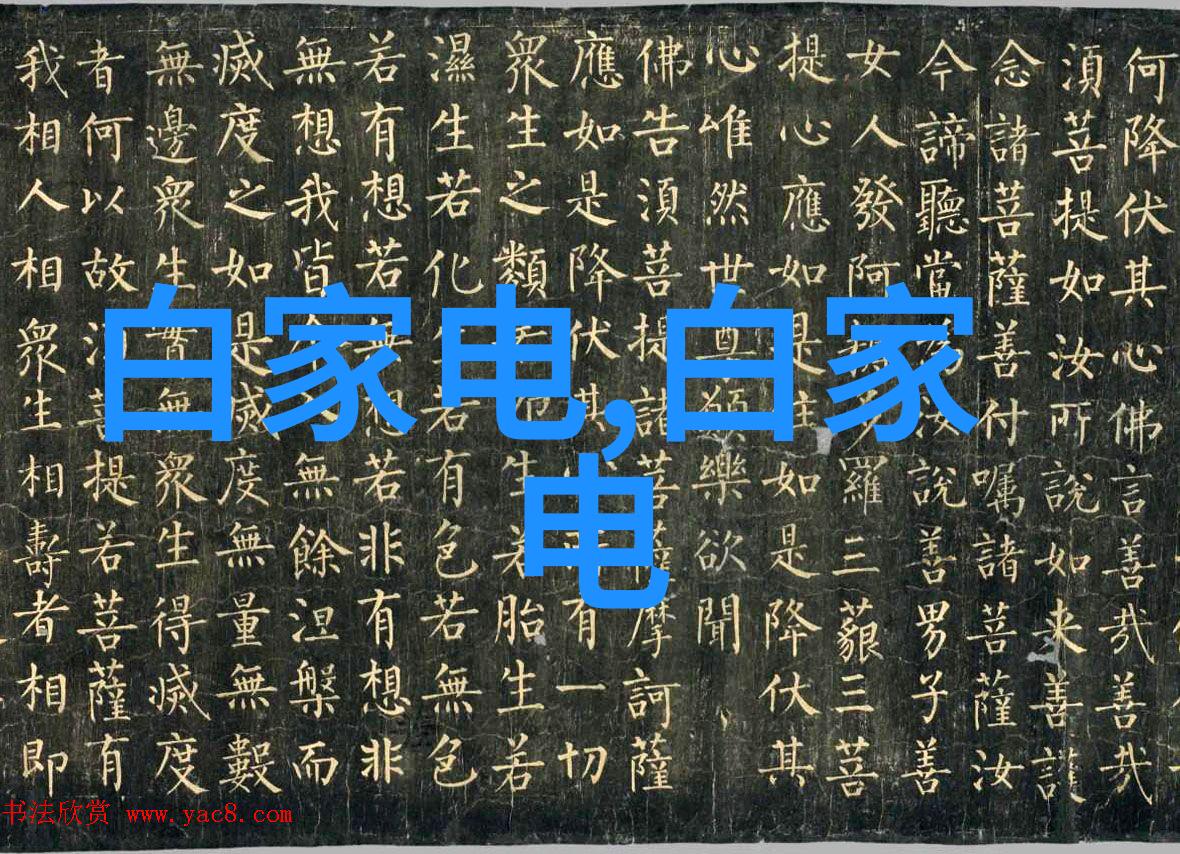 何降伏其心佛言善哉善哉
須菩提如汝所說如来善護
念諸菩薩善付囑諸菩薩汝
今諦聽當為汝說善男子善
女人發阿耨多羅三藐三菩
提心應如是住如是降伏其
心唯然世尊願樂欲聞
佛告須菩提諸菩薩摩訶薩
應如是降伏其心所有一切
衆生之類若卵生若胎生若
濕生若化生若有色若無色
若有想若無想若非有想非
無想我皆令入無餘涅槃而
滅度之如是滅度無量無數
無邊衆生實無衆生得滅度
者何以故須菩提若菩薩有
我相人相衆生相壽者相即
白家电,白家
电
书法欣赏 www.yac8.com